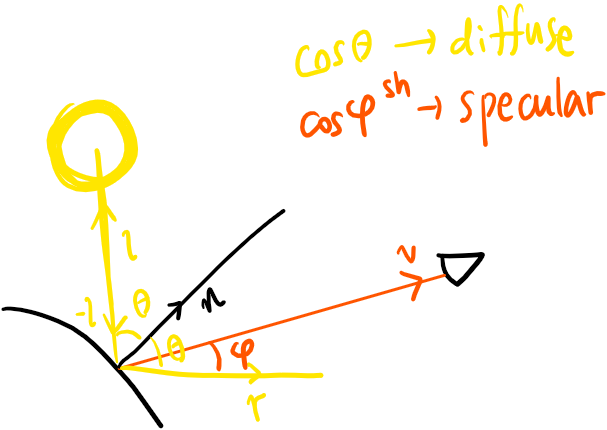 cosθ → diffuse
cosφ^sh → specular
l
v
-l θ
n
θ
φ
r